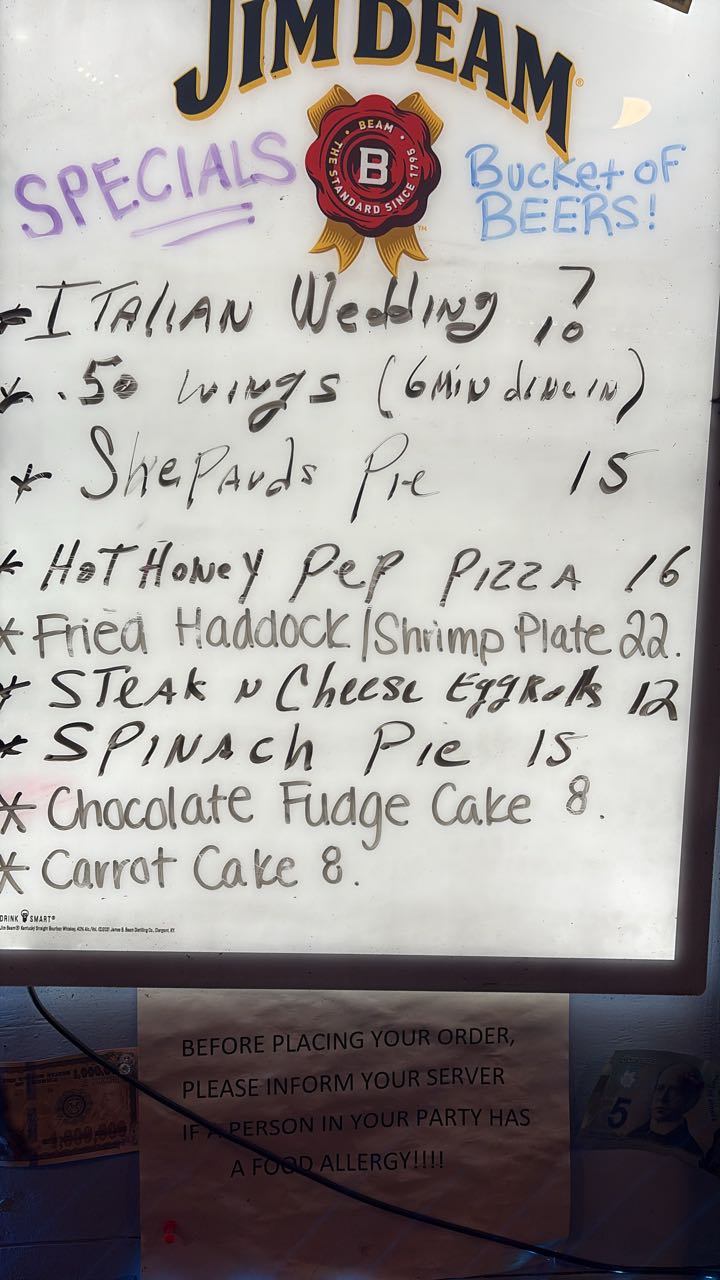 JIM BEAM®
BEAM
THE STANDARD SINCE 1795
B
™
SPECIALS
Bucket OF
BEERS!
* ITALIAN Wedding 7
10
* .50 wings (6 MIN dine IN)
* Shepards Pie 15
* HOT HONEY PEP PIZZA 16
* Fried Haddock/Shrimp Plate 22.
* STEAK N Cheese EggRolls 12
* SPINACH PIE 15
* Chocolate Fudge Cake 8.
* Carrot Cake 8.
DRINK SMART®
Jim Beam® Kentucky Straight Bourbon Whiskey, 40% Alc./Vol. ©2021 James B. Beam Distilling Co., Clermont, KY.
BEFORE PLACING YOUR ORDER,
PLEASE INFORM YOUR SERVER
IF A PERSON IN YOUR PARTY HAS
A FOOD ALLERGY!!!!
5